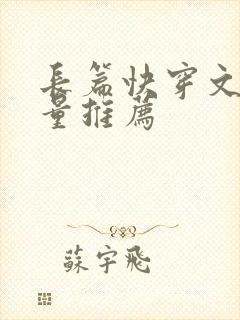 長篇快穿文
量推薦
蘇宇飛